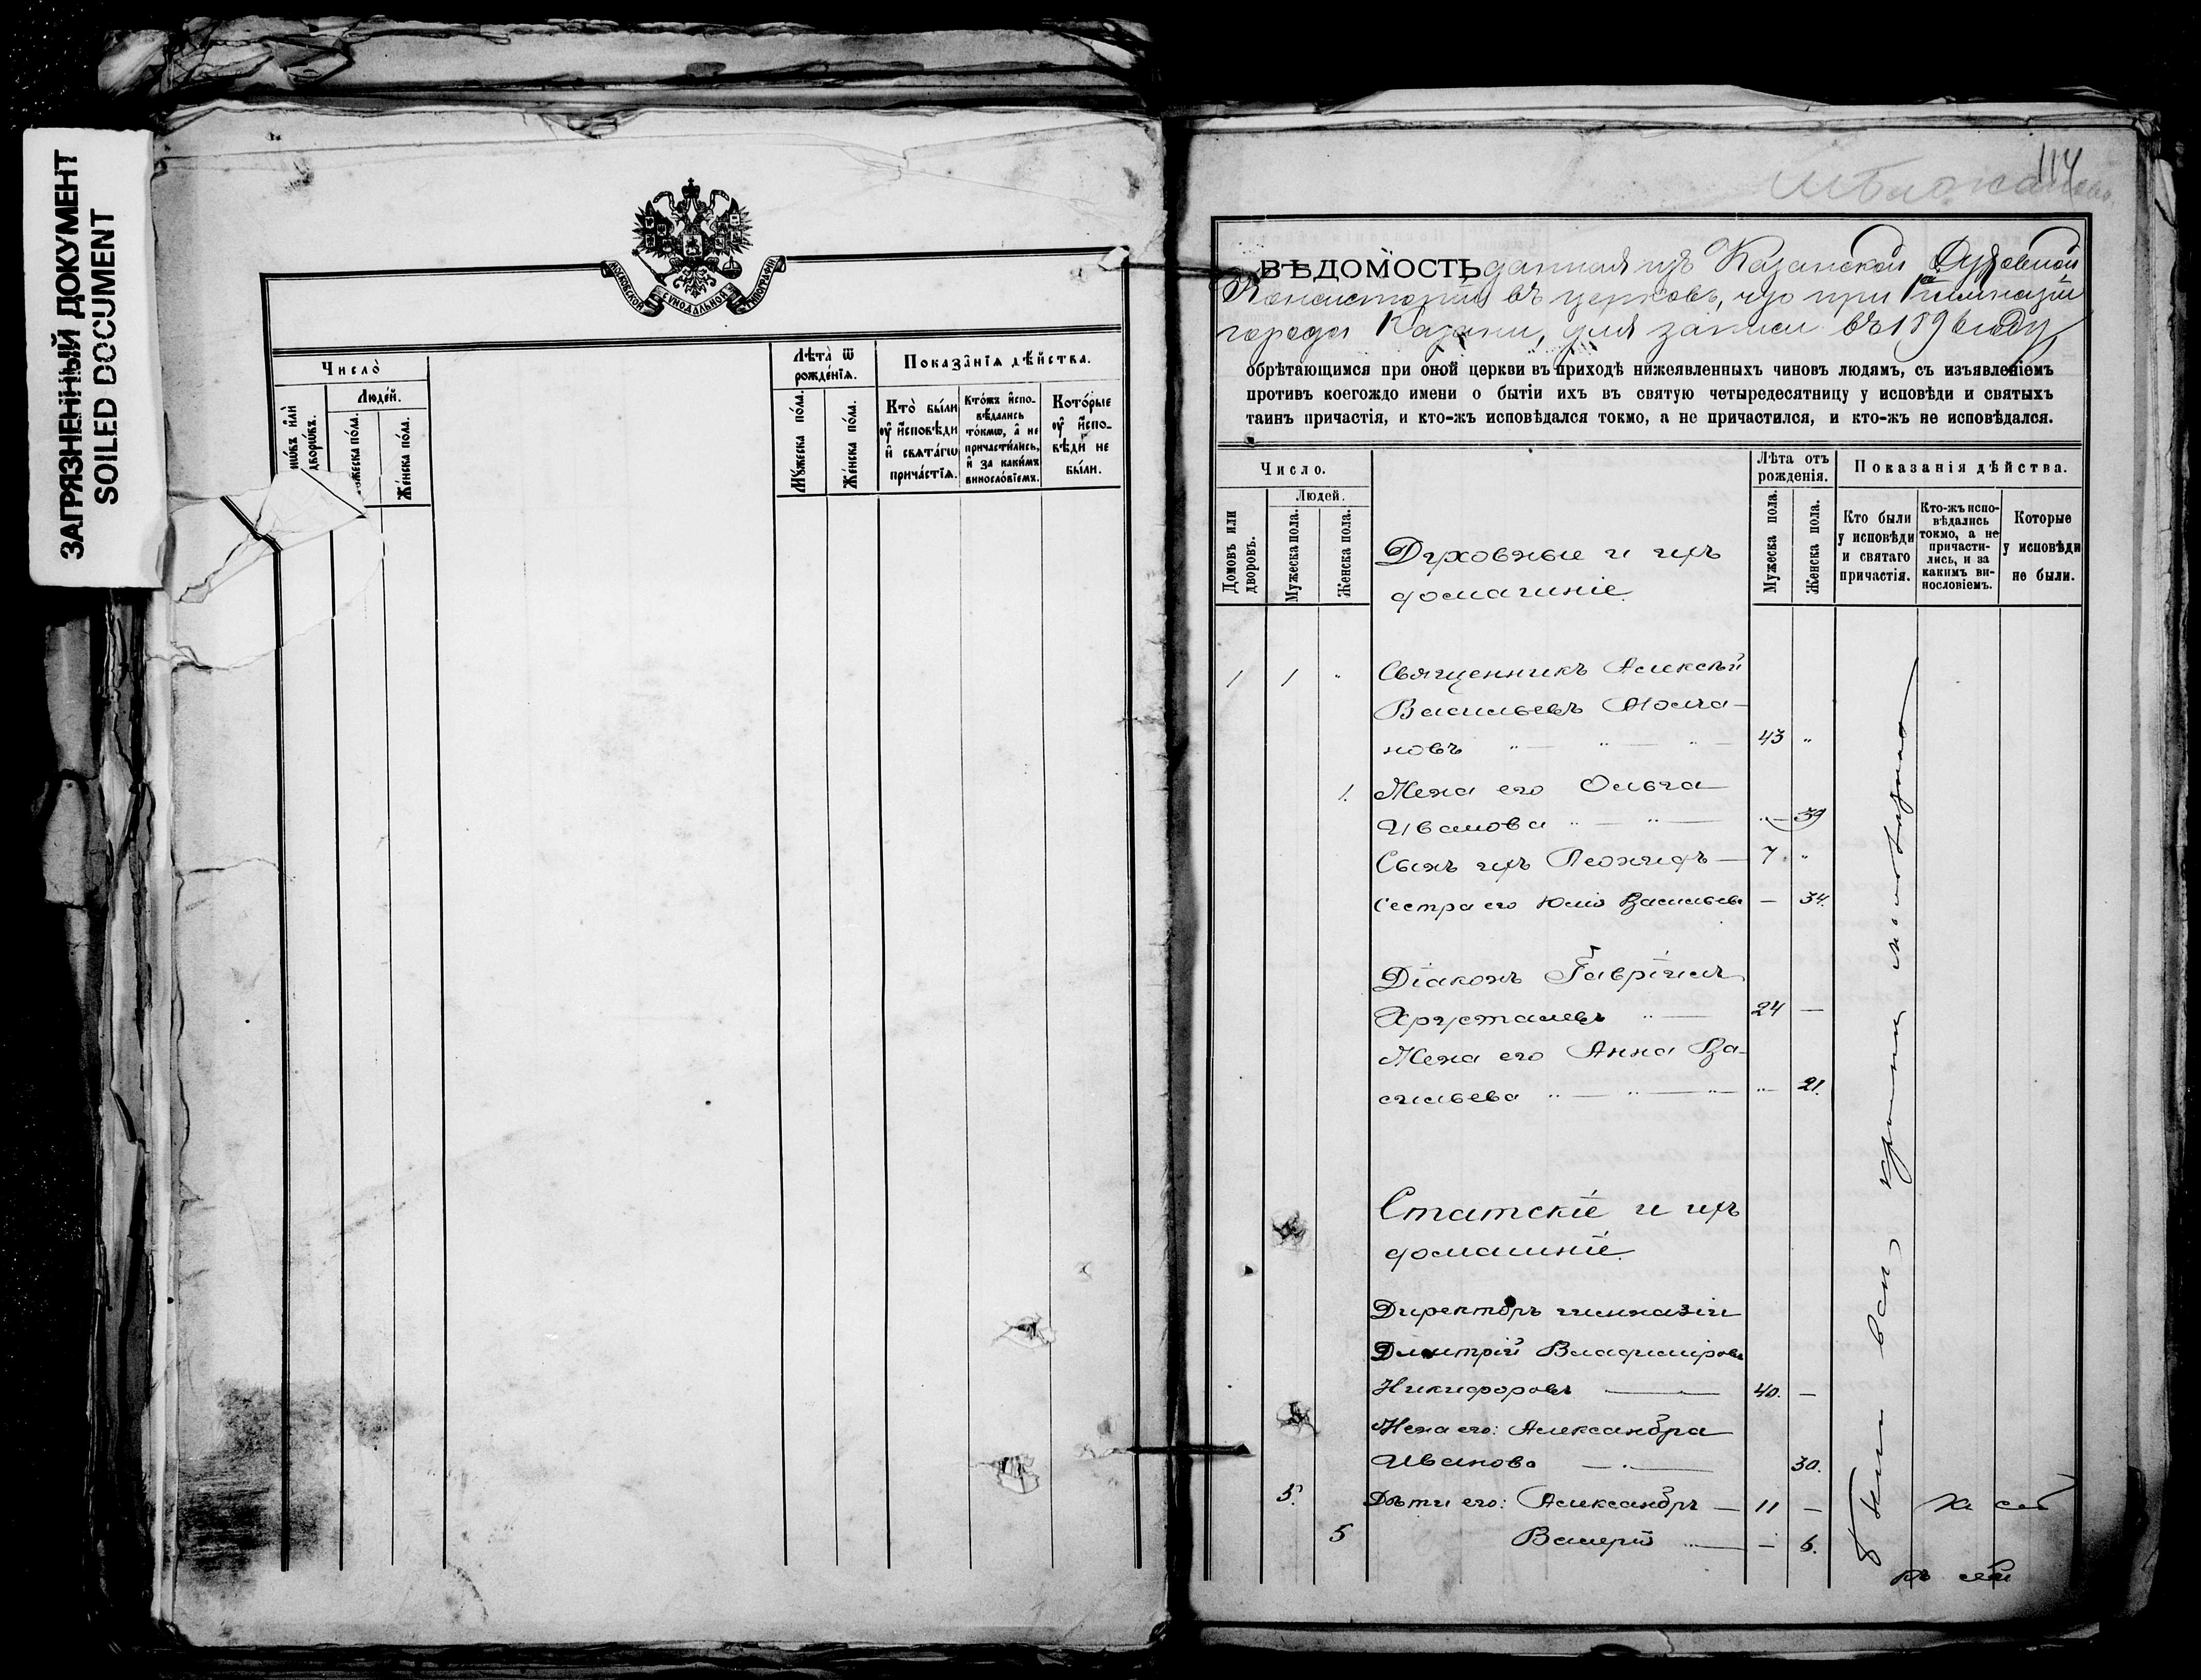 ЗАГРЯЗНЕННЫЙ ДОКУМЕНТ
SOILED DOCUMENT
МОСКОВСКОЙ СѴНОДАЛЬНОЙ ТИПОГРАФІИ
Число̀
Люде́й.
дворѡ́въ.
Же́нска по́ла.
Лѣ́та ѿ
рожде́нїѧ.
Мꙋ́жеска по́ла.
Же́нска по́ла.
Показа̑нїѧ дѣ́йства.
Кто̀ бы́ли
ᲂу҆ и҆сповѣ́ди
и҆ свѧта́гѡ
прича́стїѧ.
Кто́жъ и҆спо-
вѣ́дались
то́кмѡ, а҆ не
причасти́лись,
и҆ за каки́мъ
виносло́вїемъ.
Кото́рые
ᲂу҆ и҆спо-
вѣ́ди не
бы́ли.
114
ВѢДОМОСТЬ данная изъ Казанской Духовной
Консисторіи въ церковь, что при 1й гимназіи
города Казани, для записи въ 1896 году
обрѣтающимся при оной церкви въ приходѣ нижеявленныхъ чиновъ людямъ, съ изъявленіемъ
противъ коегождо имени о бытіи ихъ въ святую четыредесятницу у исповѣди и святыхъ
таинъ причастія, и кто-жъ исповѣдался токмо, а не причастился, и кто-жъ не исповѣдался.
Число.
Людей.
Домовъ или
дворовъ.
Мужеска пола.
Женска пола.
Духовные и ихъ
домашніе.
Лѣта отъ
рожденія.
Мужеска пола.
Женска пола.
Показанія дѣйства.
Кто были
у исповѣди
и святаго
причастія.
Кто-жъ испо-
вѣдались
токмо, а не
причасти-
лись, и за
какимъ ви-
нословіемъ.
Которые
у исповѣди
не были.
1 1 " Священникъ Алексѣй
Васильевъ Молча-
новъ " — " — " — 43 "
1. Жена его Ольга
Иванова " — " — " — 39
Сынъ ихъ Леонидъ — 7. "
Сестра его Юлія Васильев — 34.
Діаконъ Гавріилъ
Хрусталевъ " — 24 —
Жена его Анна Ва-
сильева " — " — " " — 21.
Статскіе и ихъ
домашніе.
Директоръ гимназіи
Дмитрій Владиміровъ
Никифоровъ — 40. —
Жена его: Александра
Иванова — 30.
5. Дѣти его: Александръ — 11 —
5 Валерія — — 6.